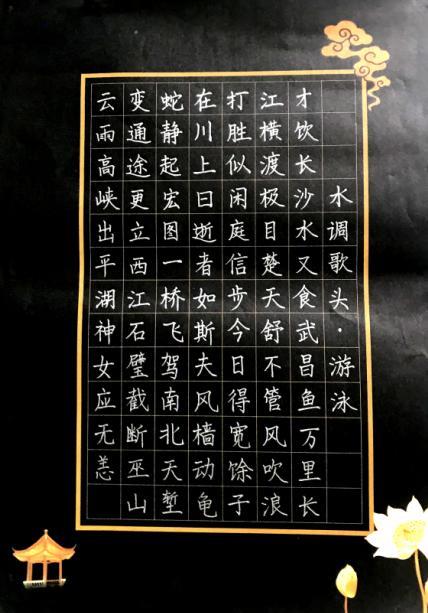 水调歌头·游泳
才饮长沙水又食武昌鱼万里长
江横渡极目楚天舒不管风吹浪
打胜似闲庭信步今日得宽馀子
在川上曰逝者如斯夫风樯动龟
蛇静起宏图一桥飞驾南北天堑
变通途更立西江石璧截断巫山
云雨高峡出平湖神女应无恙